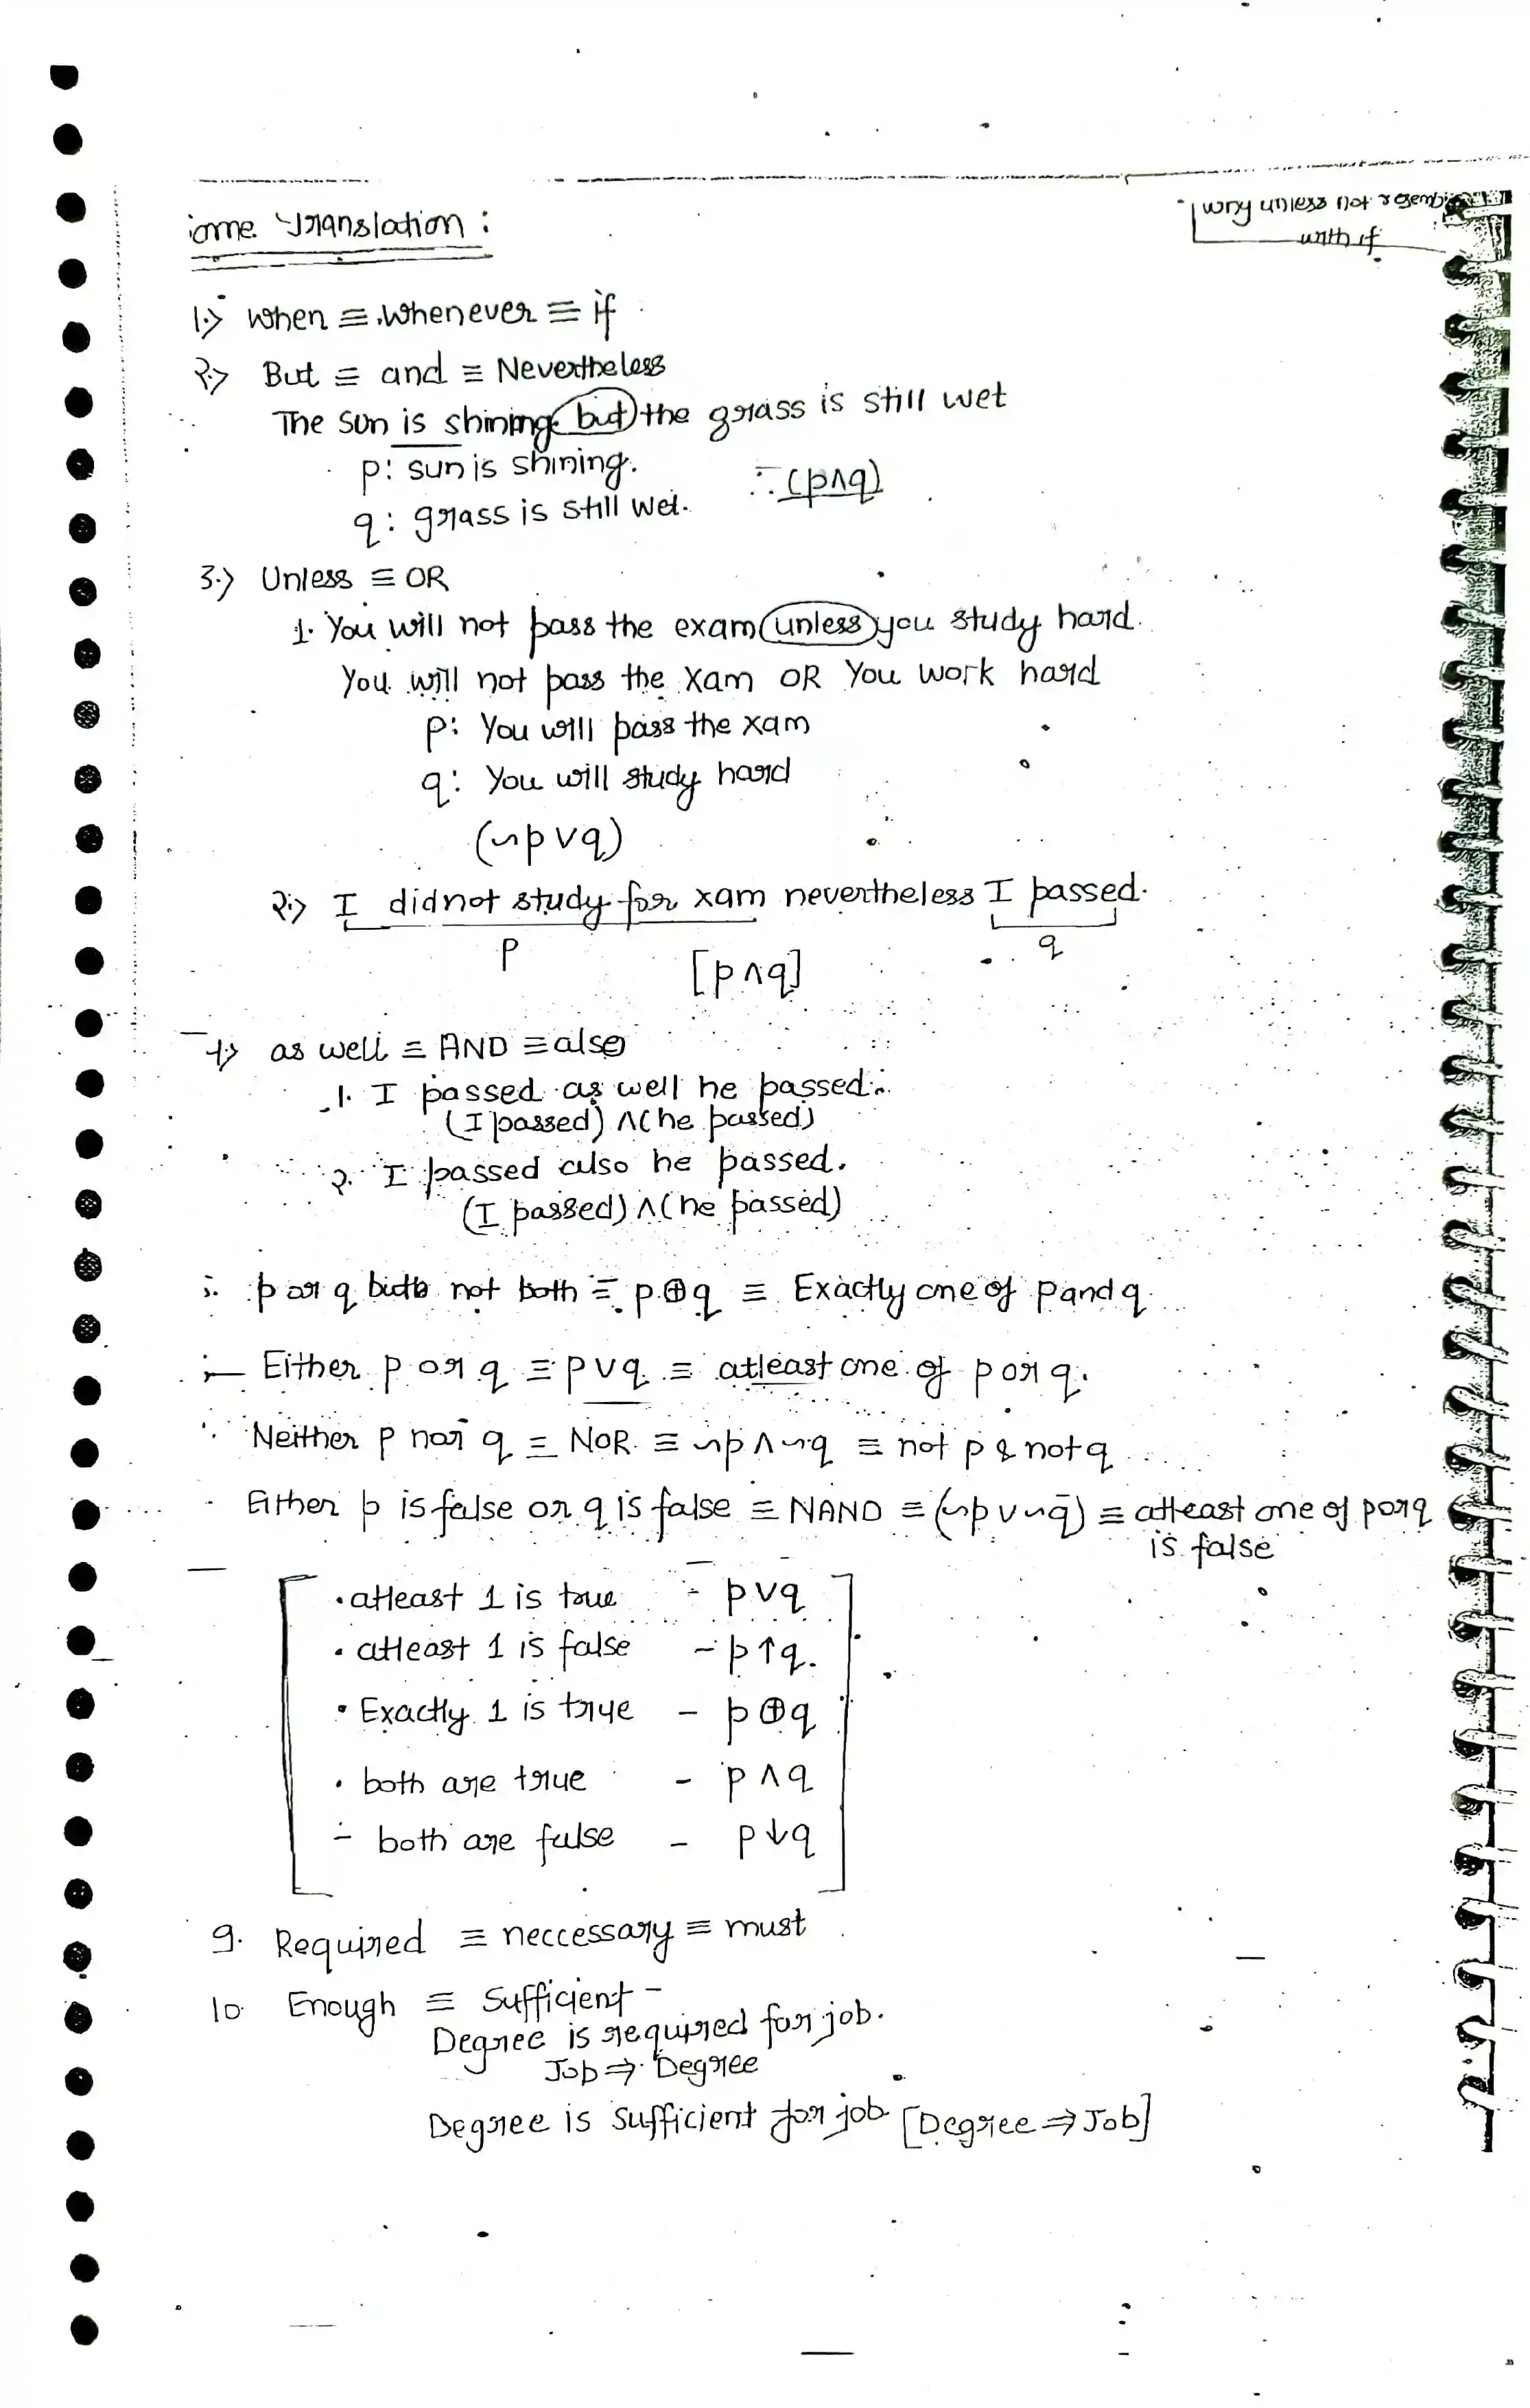 ome Translation :
why unless not
with if
1.> when ≡ whenever ≡ if
2.> But ≡ and ≡ Nevertheless
The sun is shining but the grass is still wet
p: sun is shining.
∴ (p∧q)
q: grass is still wet.
3.> Unless ≡ OR
1. You will not pass the exam unless you study hard.
You will not pass the xam OR You work hard
p: You will pass the xam
q: You will study hard
(~p∨q)
2.> I didnot study for xam nevertheless I passed.
p q
[p∧q]
4.> as well ≡ AND ≡ also
1. I passed as well he passed.
(I passed) ∧ (he passed)
2. I passed also he passed.
(I passed) ∧ (he passed)
p or q but not both ≡ p⊕q ≡ Exactly one of p and q
Either p or q ≡ p∨q ≡ atleast one of p or q.
Neither p nor q ≡ NOR ≡ ~p∧~q ≡ not p & not q
Either p is false or q is false ≡ NAND ≡ (~p∨~q) ≡ atleast one of p or q
is false
• atleast 1 is true - p∨q
• atleast 1 is false - p↑q.
• Exactly 1 is true - p⊕q
• both are true - p∧q
- both are false - p↓q
9. Required ≡ neccessary ≡ must
10. Enough ≡ Sufficient -
Degree is required for job.
Job ⇒ Degree
Degree is sufficient for job [Degree ⇒ Job]